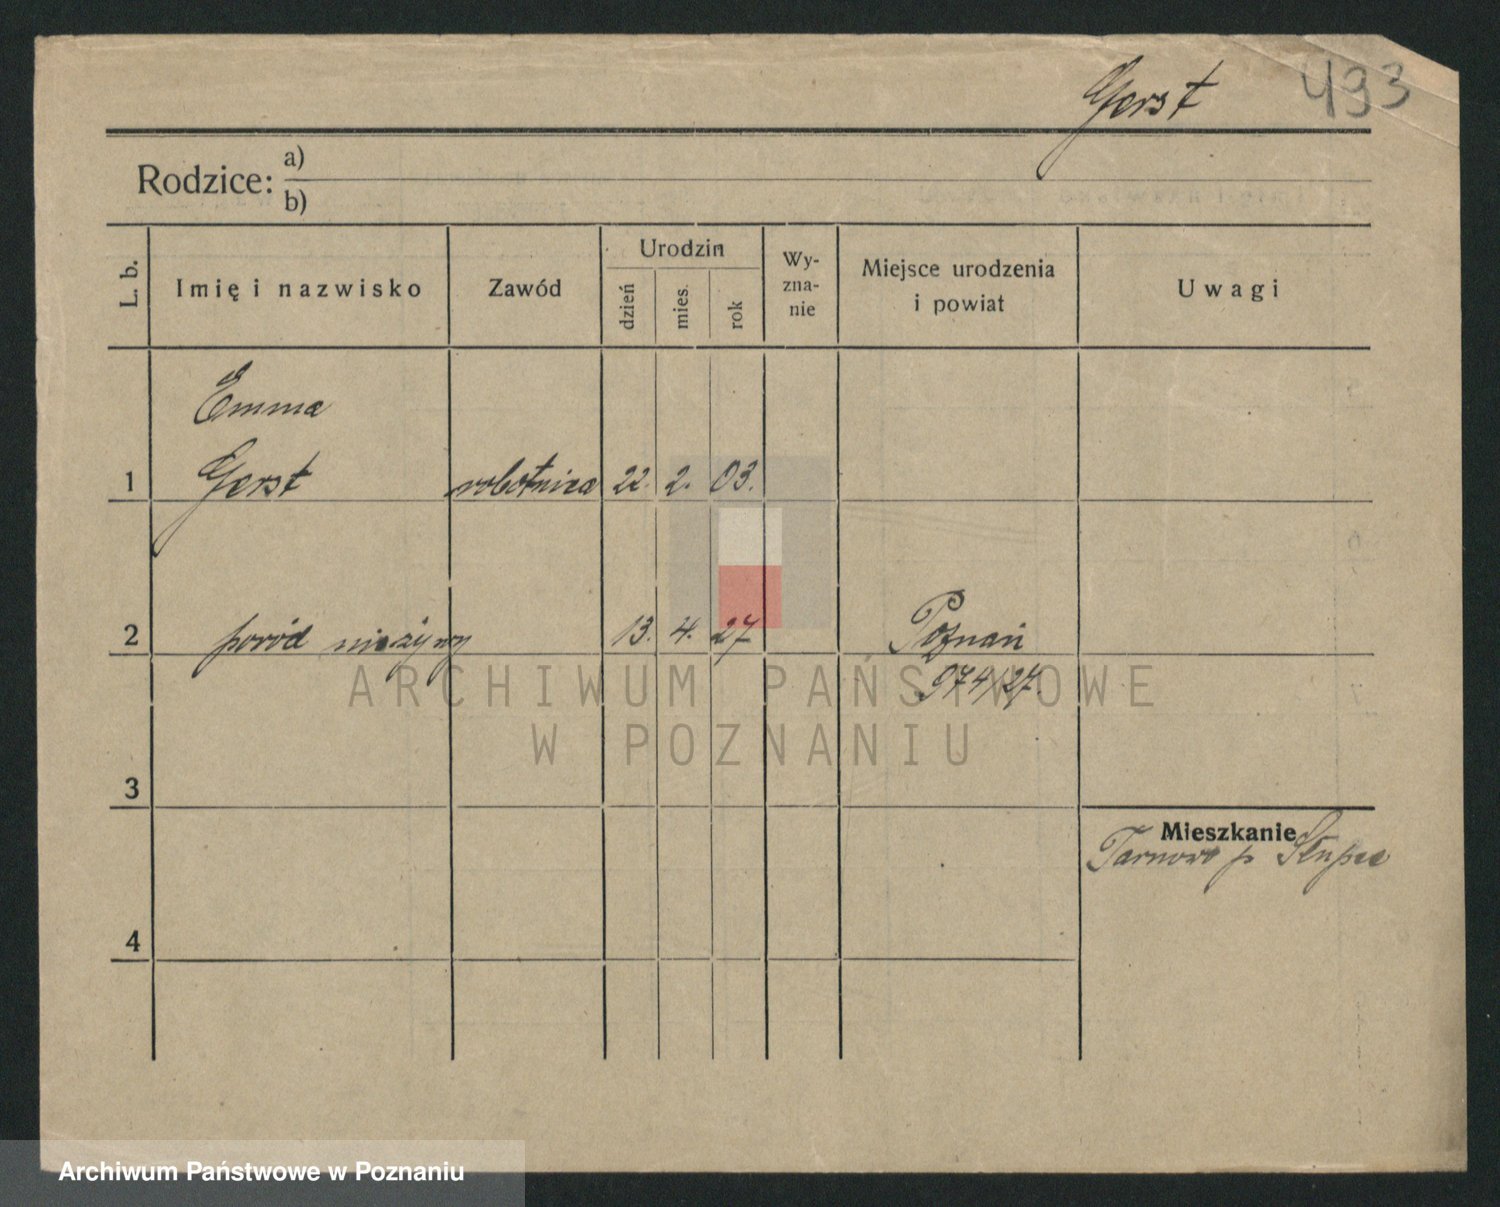 Gerst 493
Rodzice: a)
b)
L. b.
Imię i nazwisko
Zawód
Urodzin
dzień
mies.
rok
Wy-
zna-
nie
Miejsce urodzenia
i powiat
Uwagi
Emma
1 Gerst robotnica 22. 2. 03.
2 poród nieżywy 13. 4. 27 Poznań
974/27.
ARCHIWUM PAŃSTWOWE
W POZNANIU
3
Mieszkanie
Tarnowo p Słupca
4
Archiwum Państwowe w Poznaniu